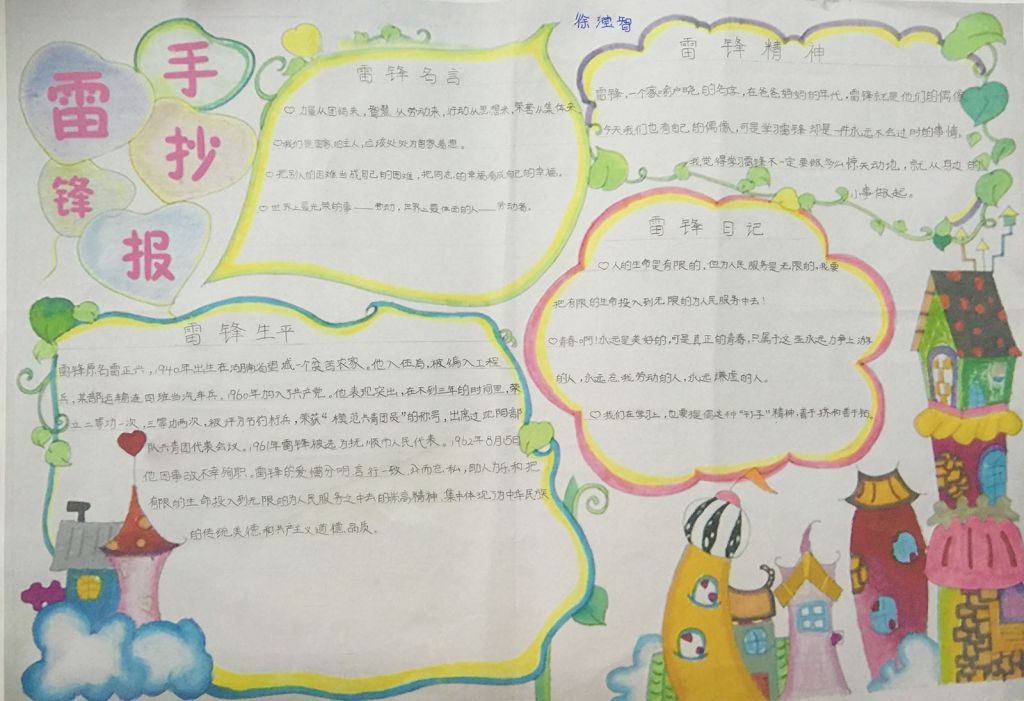 雷锋
手抄报
徐滢智
雷锋名言
力量从团结来,智慧从劳动来,行动从思想来,荣誉从集体来
我们是国家的主人,应该处处为国家着想。
把别人的困难当成自己的困难,把同志的幸福看成自己的幸福。
世界上最光荣的事——劳动,世界上最体面的人——劳动者。
雷锋精神
雷锋,一个家喻户晓的名字,在爸爸妈妈的年代,雷锋就是他们的偶像
今天我们也有自己的偶像,可是学习雷锋却是一件永远不会过时的事情。
我觉得学习雷锋不一定要做多么惊天动地,就从身边的
小事做起。
雷锋日记
人的生命是有限的,但为人民服务是无限的,我要
把有限的生命投入到无限的为人民服务中去!
青春啊!永远是美好的,可是真正的青春,只属于这些永远力争上游
的人,永远忘我劳动的人,永远谦虚的人。
我们在学习上,也要提倡这种“钉子”精神,善于挤和善于钻。
雷锋生平
雷锋原名雷正兴,1940年出生在湖南省望城一个贫苦农家。他入伍后,被编入工程
兵,某部运输连四班当汽车兵。1960年加入了共产党。他表现突出,在不到三年的时间里,荣
立二等功一次,三等功两次,被评为节约标兵,荣获“模范共青团员”的称号,出席过沈阳部
队共青团代表会议。1961年雷锋被选为抚顺市人民代表。1962年8月15日
他因事故不幸殉职。雷锋的爱憎分明言行一致,公而忘私,助人为乐和把
有限的生命投入到无限的为人民服务之中去的崇高精神,集中体现了中华民族
的传统美德和共产主义道德品质。